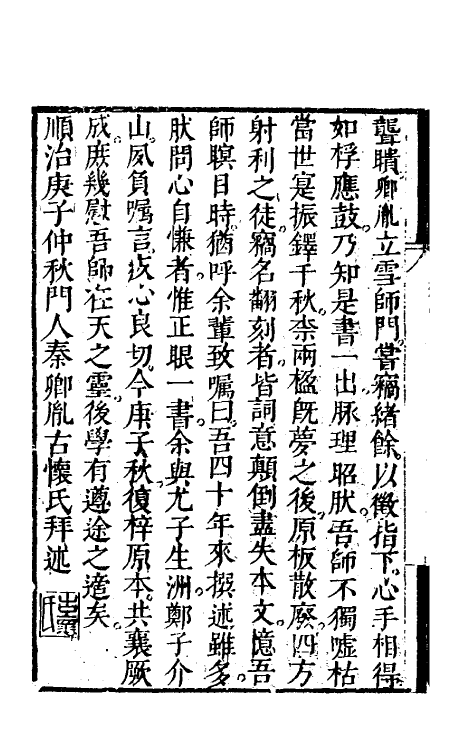 聾瞶卿胤立雪師門嘗竊緒餘以徵指下心手相得
如桴應鼓乃知是書一出脉理昭肰吾師不獨噓枯
當世寔振鐸千秋柰兩楹旣夢之後原板散廢四方
射利之徒竊名翻刻者皆詞意顛倒盡失本文憶吾
師瞑目時猶呼余輩致嘱曰吾四十年來撰述雖多
肰問心自慊者惟正眼一書余與尤子生洲鄭子介
山夙負嘱言疚心良切今庚子秋復梓原本共襄厥
成庶幾慰吾師在天之靈後學有遵途之達矣
順治庚子仲秋門人秦卿胤古懷氏拜述